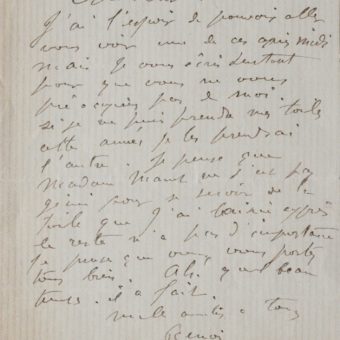 J'ai l'espoir de pouvoir aller
vous voir une de ces après midi
mais je vous écris surtout
pour que vous ne vous
préocupiez pas de moi.
si je ne puis prendre mes toiles
cette année je les prendrai
l'autre. Je pense que
Madame ne s'est pas
pour se servir de la
toile que j'ai laissée après
le reste n'a pas d'importance
Je pense que vous vous portez
tous bien. Ah. quel beau
temps il a fait.
mille amitiés a tous
Renoir